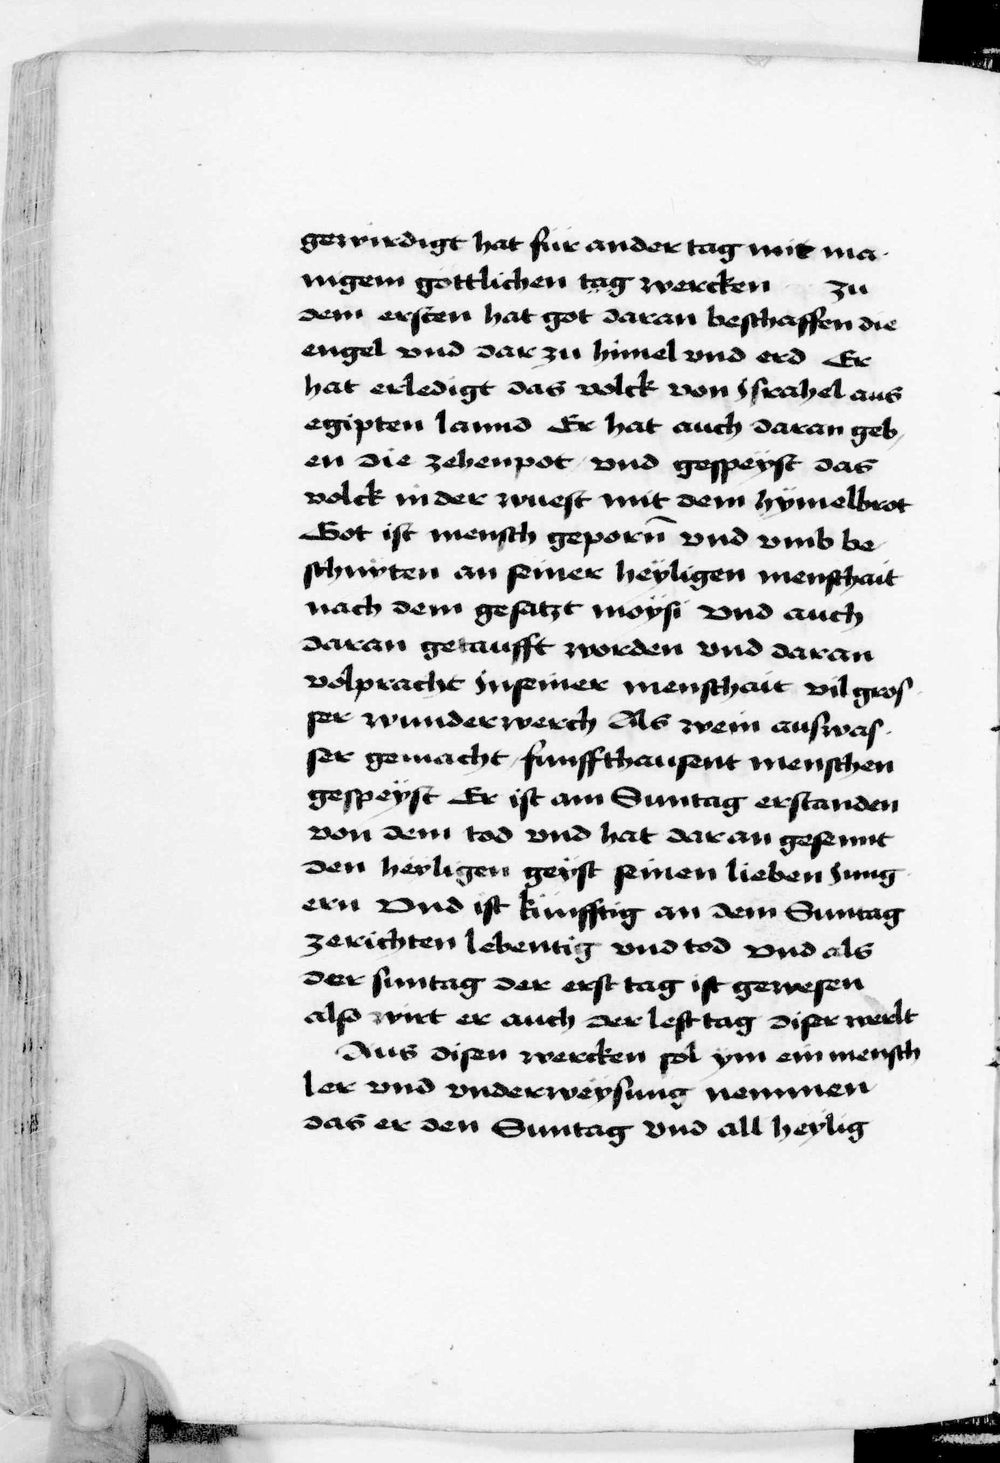 gewirdigt hat für ander tag mit ma-
nigem göttlichen tag wercken zu
dem ersten hat got daran beschaffen die
engel vnd dar zu himel vnd erd Er
hat erledigt das volck von Jsrahel aus
egipten lannd Er hat auch daran geb-
en die zehenpot vnd gespeyst das
volck in der wuest mit dem hÿmelbrot
Got ist mensch geporn̄ vnd vmb be-
schnyten an seiner heÿligen menschait
nach dem gesatzt moÿsi vnd auch
daran getaufft worden vnd daran
volpracht Jn seiner menschait vil gros-
ser wunderwerch Als wein aus was-
ser gemacht funffthausent menschen
gespeÿst Er ist am Suntag erstanden
von dem tod vnd hat daran gesennt
den heyligen geÿst seinen lieben Jung-
ern Vnd ist künfftig an dem Suntag
zerichten lebentig vnd tod vnd als
der suntag der erst tag ist gewesen
also wirt er auch der lest tag diser werlt
Aus disen wercken sol ym ein mensch
ler vnd vnderweÿsung nemmen
das er den Suntag vnd all heÿlig